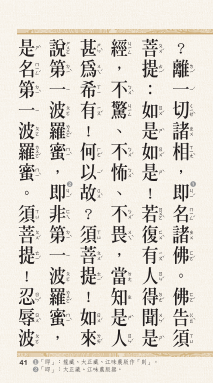 ？離一切諸相，即名諸佛。佛告須
菩提：如是如是！若復有人得聞是
經，不驚、不怖、不畏，當知是人
甚為希有！何以故？須菩提！如來
說第一波羅蜜，即非第一波羅蜜，
是名第一波羅蜜。須菩提！忍辱波
41
「即」：龍藏、大正藏、江味農版作「則」。
「即」：大正藏、江味農版